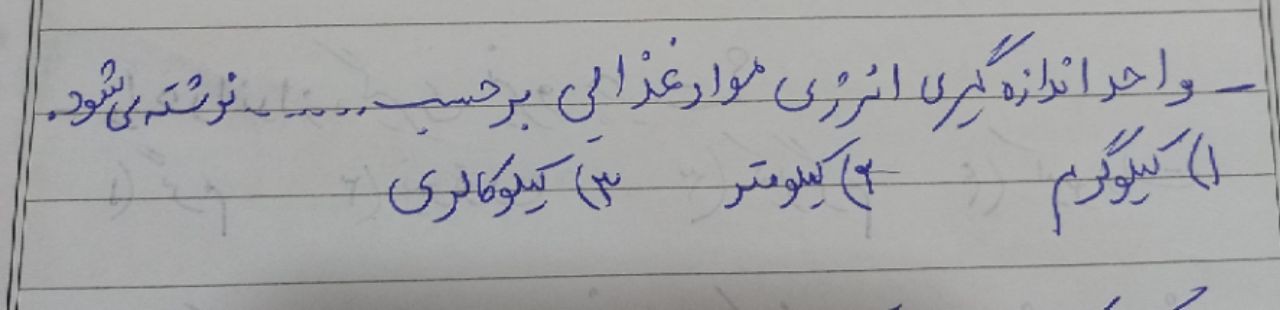 - واحد اندازه گیری انرژی مواد غذایی برحسب ........ نوشته می شود.
۱) کیلوگرم ۲) کیلومتر ۳) کیلوکالری